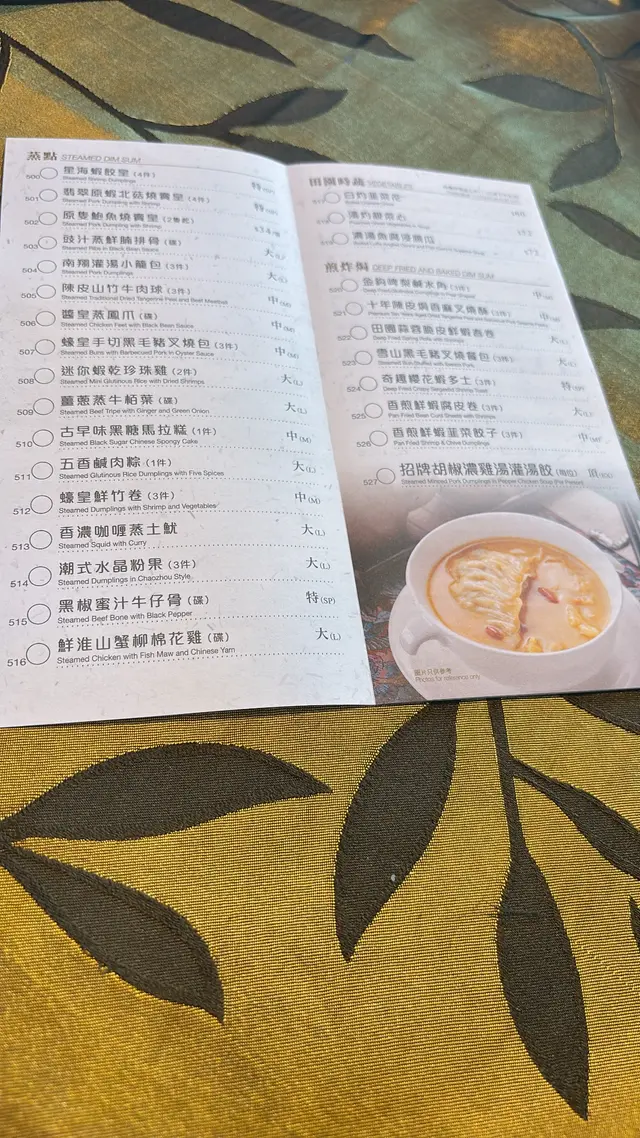 蒸點 STEAMED DIM SUM
500 星海蝦餃皇 (4件) 特(SP)
Steamed Shrimp Dumplings
501 翡翠原蝦北菇燒賣皇 (4件) 特(SP)
Steamed Pork Dumplings with Shrimp
502 原隻鮑魚燒賣皇 (2隻起)
503 豉汁蒸鮮腩排骨 (碟) 大(L)
Steamed Ribs in Black Bean Sauce
504 南翔灌湯小籠包 (3件) 大(L)
Steamed Pork Dumplings
505 陳皮山竹牛肉球 (3件) 中(M)
Steamed Traditional Dried Tangerine Peel and Beef Meatball
506 醬皇蒸鳳爪 (碟) 中(M)
Steamed Chicken Feet with Black Bean Sauce
507 蠔皇手切黑毛豬叉燒包 (3件) 中(M)
Steamed Buns with Barbecued Pork in Oyster Sauce
508 迷你蝦乾珍珠雞 (2件) 大(L)
Steamed Mini Glutinous Rice with Dried Shrimps
509 薑蔥蒸牛栢葉 (碟) 大(L)
Steamed Beef Tripe with Ginger and Green Onion
510 古早味黑糖馬拉糕 (1件) 中(M)
Steamed Black Sugar Chinese Spongy Cake
511 五香鹹肉粽 (1件) 大(L)
Steamed Glutinous Rice Dumplings with Five Spices
512 蠔皇鮮竹卷 (3件) 中(M)
Steamed Dumplings with Shrimp and Vegetables
513 香濃咖喱蒸土魷 大(L)
Steamed Squid with Curry
514 潮式水晶粉果 (3件) 大(L)
Steamed Dumplings in Chaozhou Style
515 黑椒蜜汁牛仔骨 (碟) 特(SP)
Steamed Beef Bone with Black Pepper
516 鮮淮山蟹柳棉花雞 (碟) 大(L)
Steamed Chicken with Fish Maw and Chinese Yam
田園時蔬 VEGETABLES
白灼韮菜花
煎炸焗 DEEP FRIED AND BAKED DIM SUM
521 十年陳皮焗香麻叉燒酥 (3件)
522 田園蒜蓉脆皮鮮蝦春卷 大(L)
523 雪山黑毛豬叉燒餐包 (3件) 大(L)
524 奇趣櫻花蝦多士 (3件) 特(SP)
Deep Fried Crispy Tangerine Shrimp Toast
525 香煎鮮蝦腐皮卷 (3件) 大(L)
Pan Fried Bean Curd Sheets with Shrimps
526 香煎鮮蝦韮菜餃子 (3件) 中(M)
Pan Fried Shrimp & Chive Dumplings
527 招牌胡椒濃雞湯灌湯餃 (每位) 頂
Steamed Minced Pork Dumplings in Pepper Chicken Soup (Per Person)
圖片只供參考
Photos for reference only